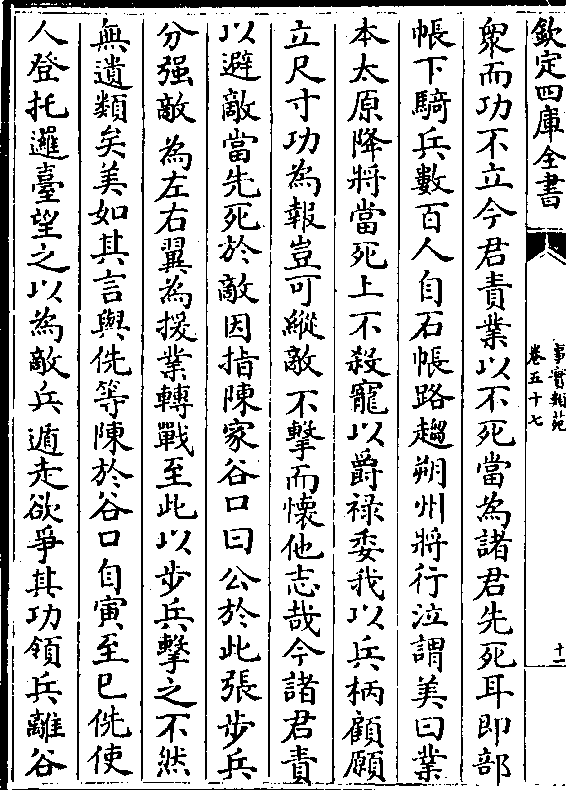 欽定四庫全書
事實類苑
卷五十七
十二
衆而功不立今君責業以不死當為諸君先死耳即部
帳下騎兵數百人自石帳路趨朔州將行泣謂美曰業
本太原降將當死上不殺寵以爵禄委我以兵柄顧願
立尺寸功為報豈可縱敵不擊而懐他志哉今諸君責
以避敵當先死於敵因指陳家谷口曰公於此張步兵
分强敵為左右翼為援業轉戰至此以步兵擊之不然
無遺類矣美如其言與侁等陳於谷口自寅至巳侁使
人登托邏臺望之以為敵兵遁走欲爭其功領兵離谷